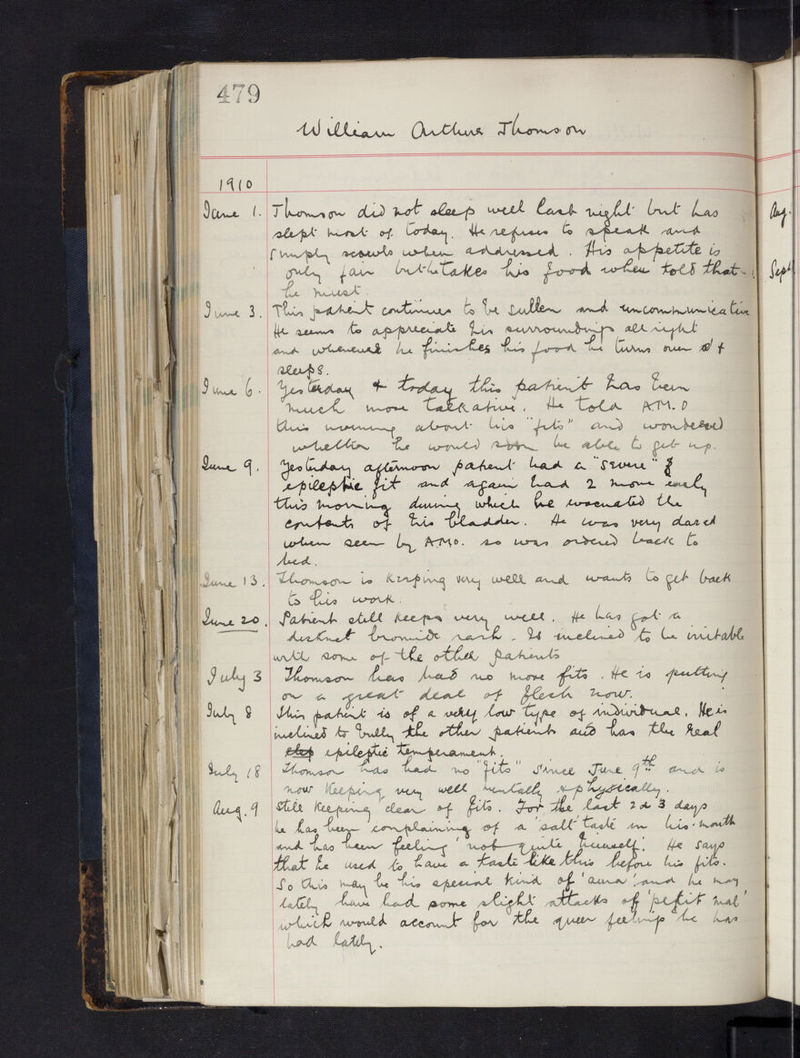 479
William Arthur Thomson
1910
June 1. Thomson did not sleep well last night but has
slept most of today. He refuses to speak and
simply scowls when addressed. His appetite is
only fair but he takes his food when told that
he must.
June 3. This patient continues to be sullen and uncommunicative
He seems to appreciate his surroundings all right
and whenever he finishes his food he turns over &
sleeps.
June 6. Yesterday & today this patient has been
much more talkative. He told A.M.O
this morning about his "fits" and wondered
whether he would soon be able to get up.
June 9. Yesterday afternoon patient had a "severe"
epileptic fit and again had 2 more early
this morning during which he evacuated the
contents of his bladder. He was very dazed
when seen by A.M.O. so was ordered back to
bed.
June 13. Thomson is keeping very well and wants to get back
to his work.
June 20. Patient still keeps very well. He has got a
distinct bromide rash. Is inclined to be irritable
with some of the other patients
July 3 Thomson has had no more fits. He is putting
on a great deal of flesh now.
July 8 This patient is of a very low type of individual. He is
inclined to bully the other patients and has the real
epileptic temperament.
July 18 Thomson has had no "fits" since June 9th and is
now keeping very well mentally & physically.
Aug. 9 Still keeping clear of fits. For the last 2 or 3 days
he has been complaining of a 'salt' taste in his mouth
and has been feeling 'not quite himself'. He says
that he used to have a taste like this before his fits.
So this may be his special kind of 'aura' and he may
lately have had some slight attacks of 'petit mal'
which would account for the queer feelings he has
had lately.
Aug.
Sept